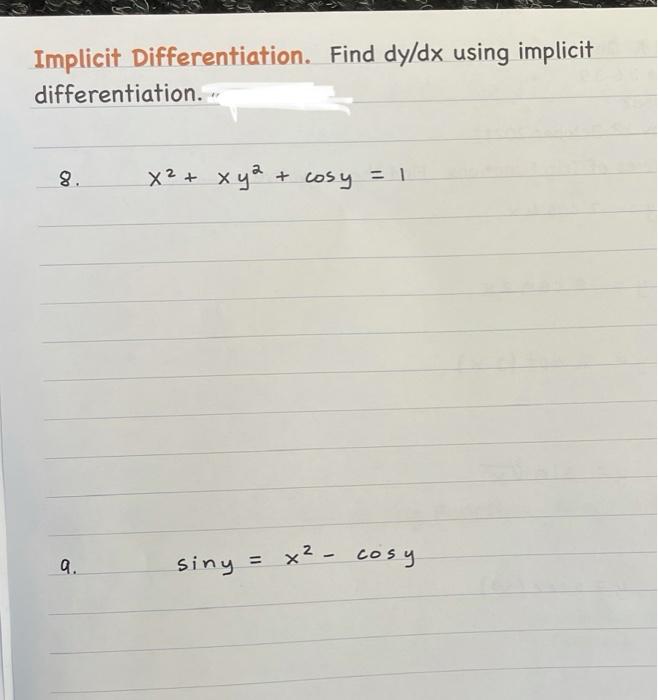 Implicit Differentiation. Find dy/dx using implicit
differentiation.
8. x² + xy² + cosy = 1
9. siny = x² - cosy